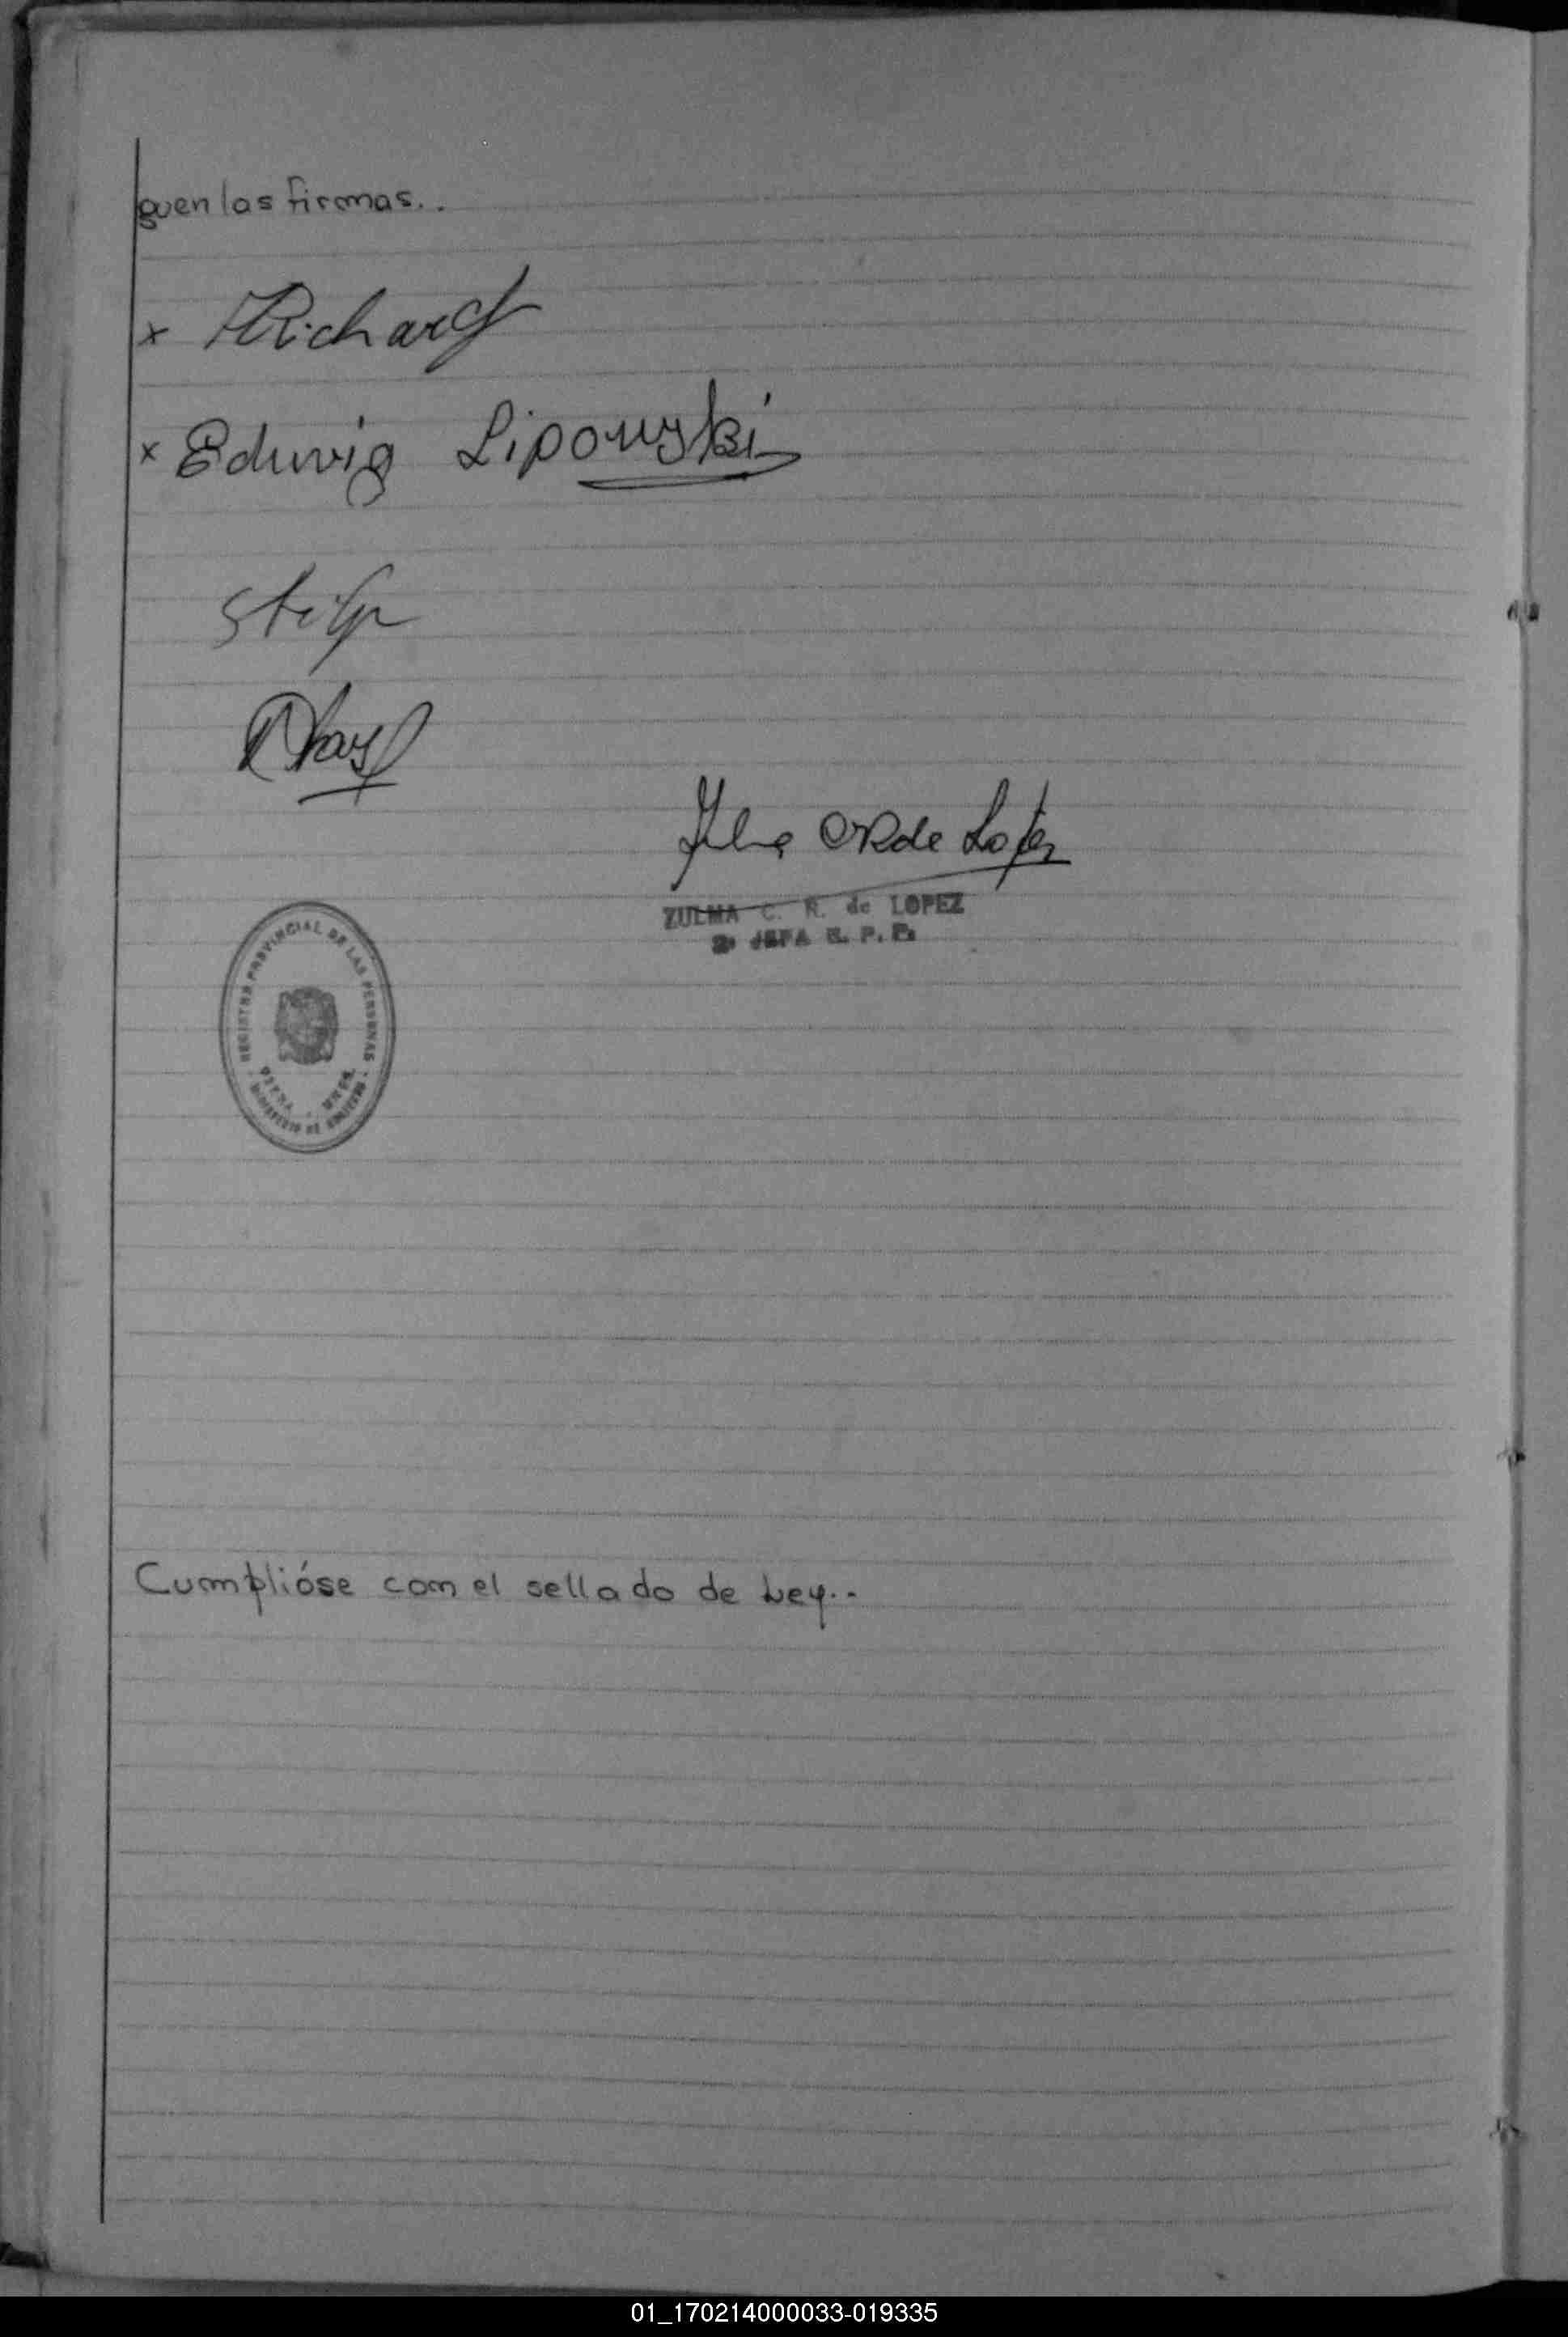 guen las firmas..
x Richard
x Edwig Lipowski
Zulma C R de Lopez
ZULMA C. R. de LOPEZ
JEFA R. P. P.
REGISTRO PROVINCIAL DE LAS PERSONAS
MINISTERIO DE
Cumplióse con el sellado de Ley..
01_170214000033-019335